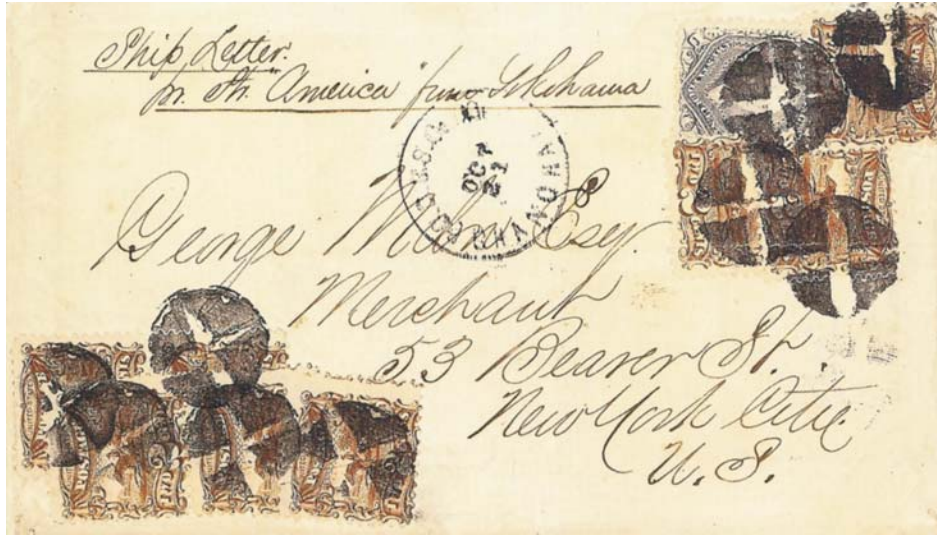 Ship Letter.
pr. Str. America from Yokohama
OCT
21
George Esq.
Merchant
53 Beaver St.
New York Citie.
U. S.